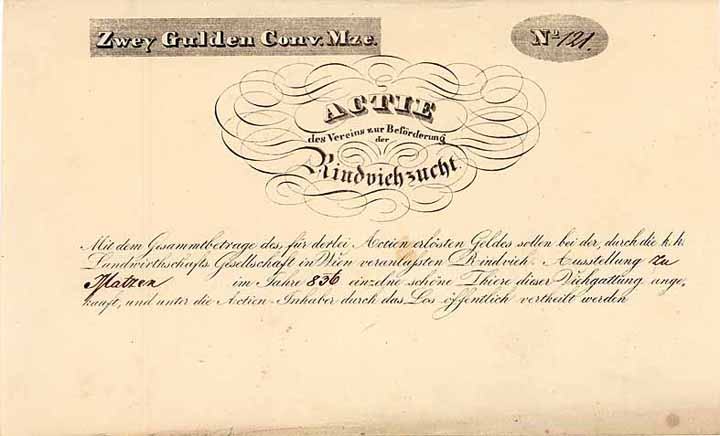 Zwey Gulden Conv. Mze.
No 121.
ACTIE
des Vereins zur Beförderung
der
Rindviehzucht.
Mit dem Gesammtbetrage des, für derlei Actien erlösten Geldes sollen bei der, durch die k. k.
Landwirthschafts Gesellschaft in Wien veranlassten Rindvieh-Ausstellung zu
Matzen im Jahre 836 einzelne schöne Thiere dieser Viehgattung ange-
kauft, und unter die Actien-Inhaber durch das Los öffentlich vertheilt werden